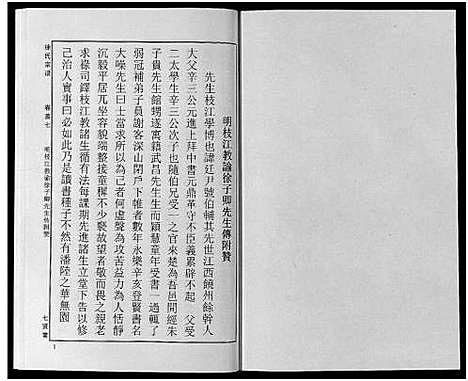 明枝江教諭徐子卿先生傳附贊
先生枝江學博也諱廷尹號伯輔其先世江西饒州餘幹人
大父辛三公元進上拜中書元鼎革守不臣義累辟不起　父受
二太學生辛三公次子也隨伯兄受一之官來楚為吾邑聞經朱
子貴先生館甥遂寓籍武昌先生生而穎慧童年受書一過輒了
弱冠補弟子員謝客深山閉戶下帷者數年永樂辛亥登賢書名
大噪先生曰士當求其在己者何虛聲為攻苦益力為人恬靜
沉毅平居兀坐端整接童穉不少褻故望者敬而畏之親老
求祿司鐸枝江教諸生循循有法每課期先進諸生立堂下告以修
己治人實事曰必如此乃是讀書種子不然有潘陸之華無園
徐氏宗譜
卷首七
明枝江教諭徐子卿先生傳附贊
七
1